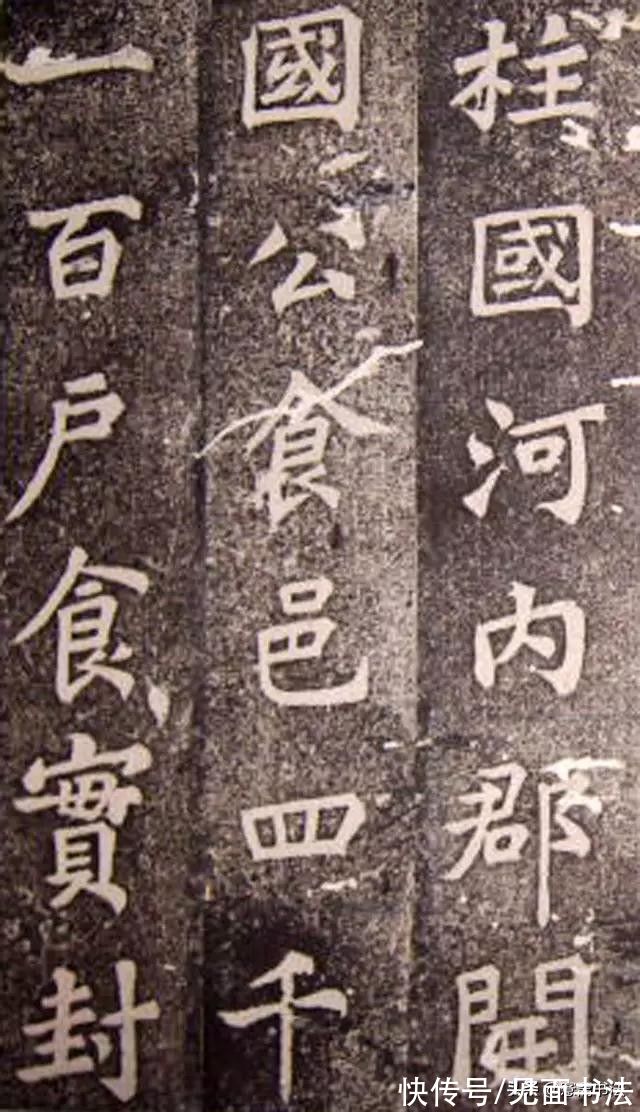 柱國河内郡開
國公食邑四千
一百戶食實封
快传号/见面书法